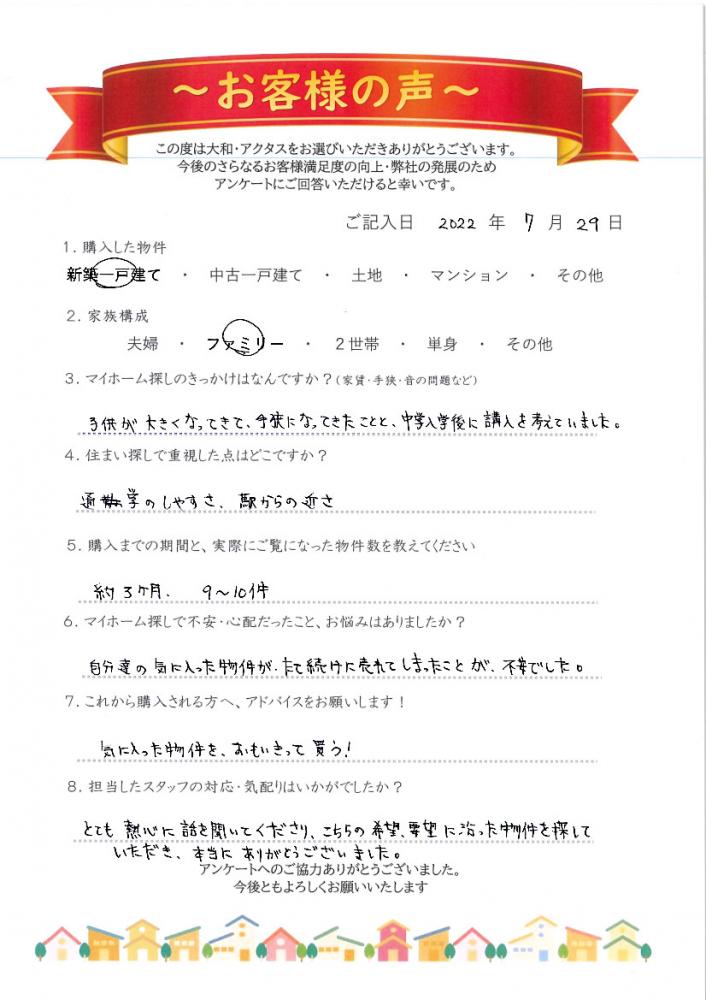 ～お客様の声～
この度は大和・アクタスをお選びいただきありがとうございます。
今後のさらなるお客様満足度の向上・弊社の発展のため
アンケートにご回答いただけると幸いです。
ご記入日 2022 年 7 月 29 日
1. 購入した物件
新築一戸建て ・ 中古一戸建て ・ 土地 ・ マンション ・ その他
2. 家族構成
夫婦 ・ ファミリー ・ 2世帯 ・ 単身 ・ その他
3. マイホーム探しのきっかけはなんですか？（家賃・手狭・音の問題など）
子供が大きくなってきて、手狭になってきたことと、中学入学後に購入を考えていました。
4. 住まい探しで重視した点はどこですか？
通学のしやすさ、駅からの近さ
5. 購入までの期間と、実際にご覧になった物件数を教えてください
約3ヶ月、 9～10件
6. マイホーム探しで不安・心配だったこと、お悩みはありましたか？
自分達の気に入った物件が、たて続けに売れてしまったことが、不安でした。
7. これから購入される方へ、アドバイスをお願いします！
気に入った物件を、おもいきって買う！
8. 担当したスタッフの対応・気配りはいかがでしたか？
とても熱心に話を聞いてくださり、こちらの希望、要望に沿った物件を探して
いただき、本当にありがとうございました。
アンケートへのご協力ありがとうございました。
今後ともよろしくお願いいたします